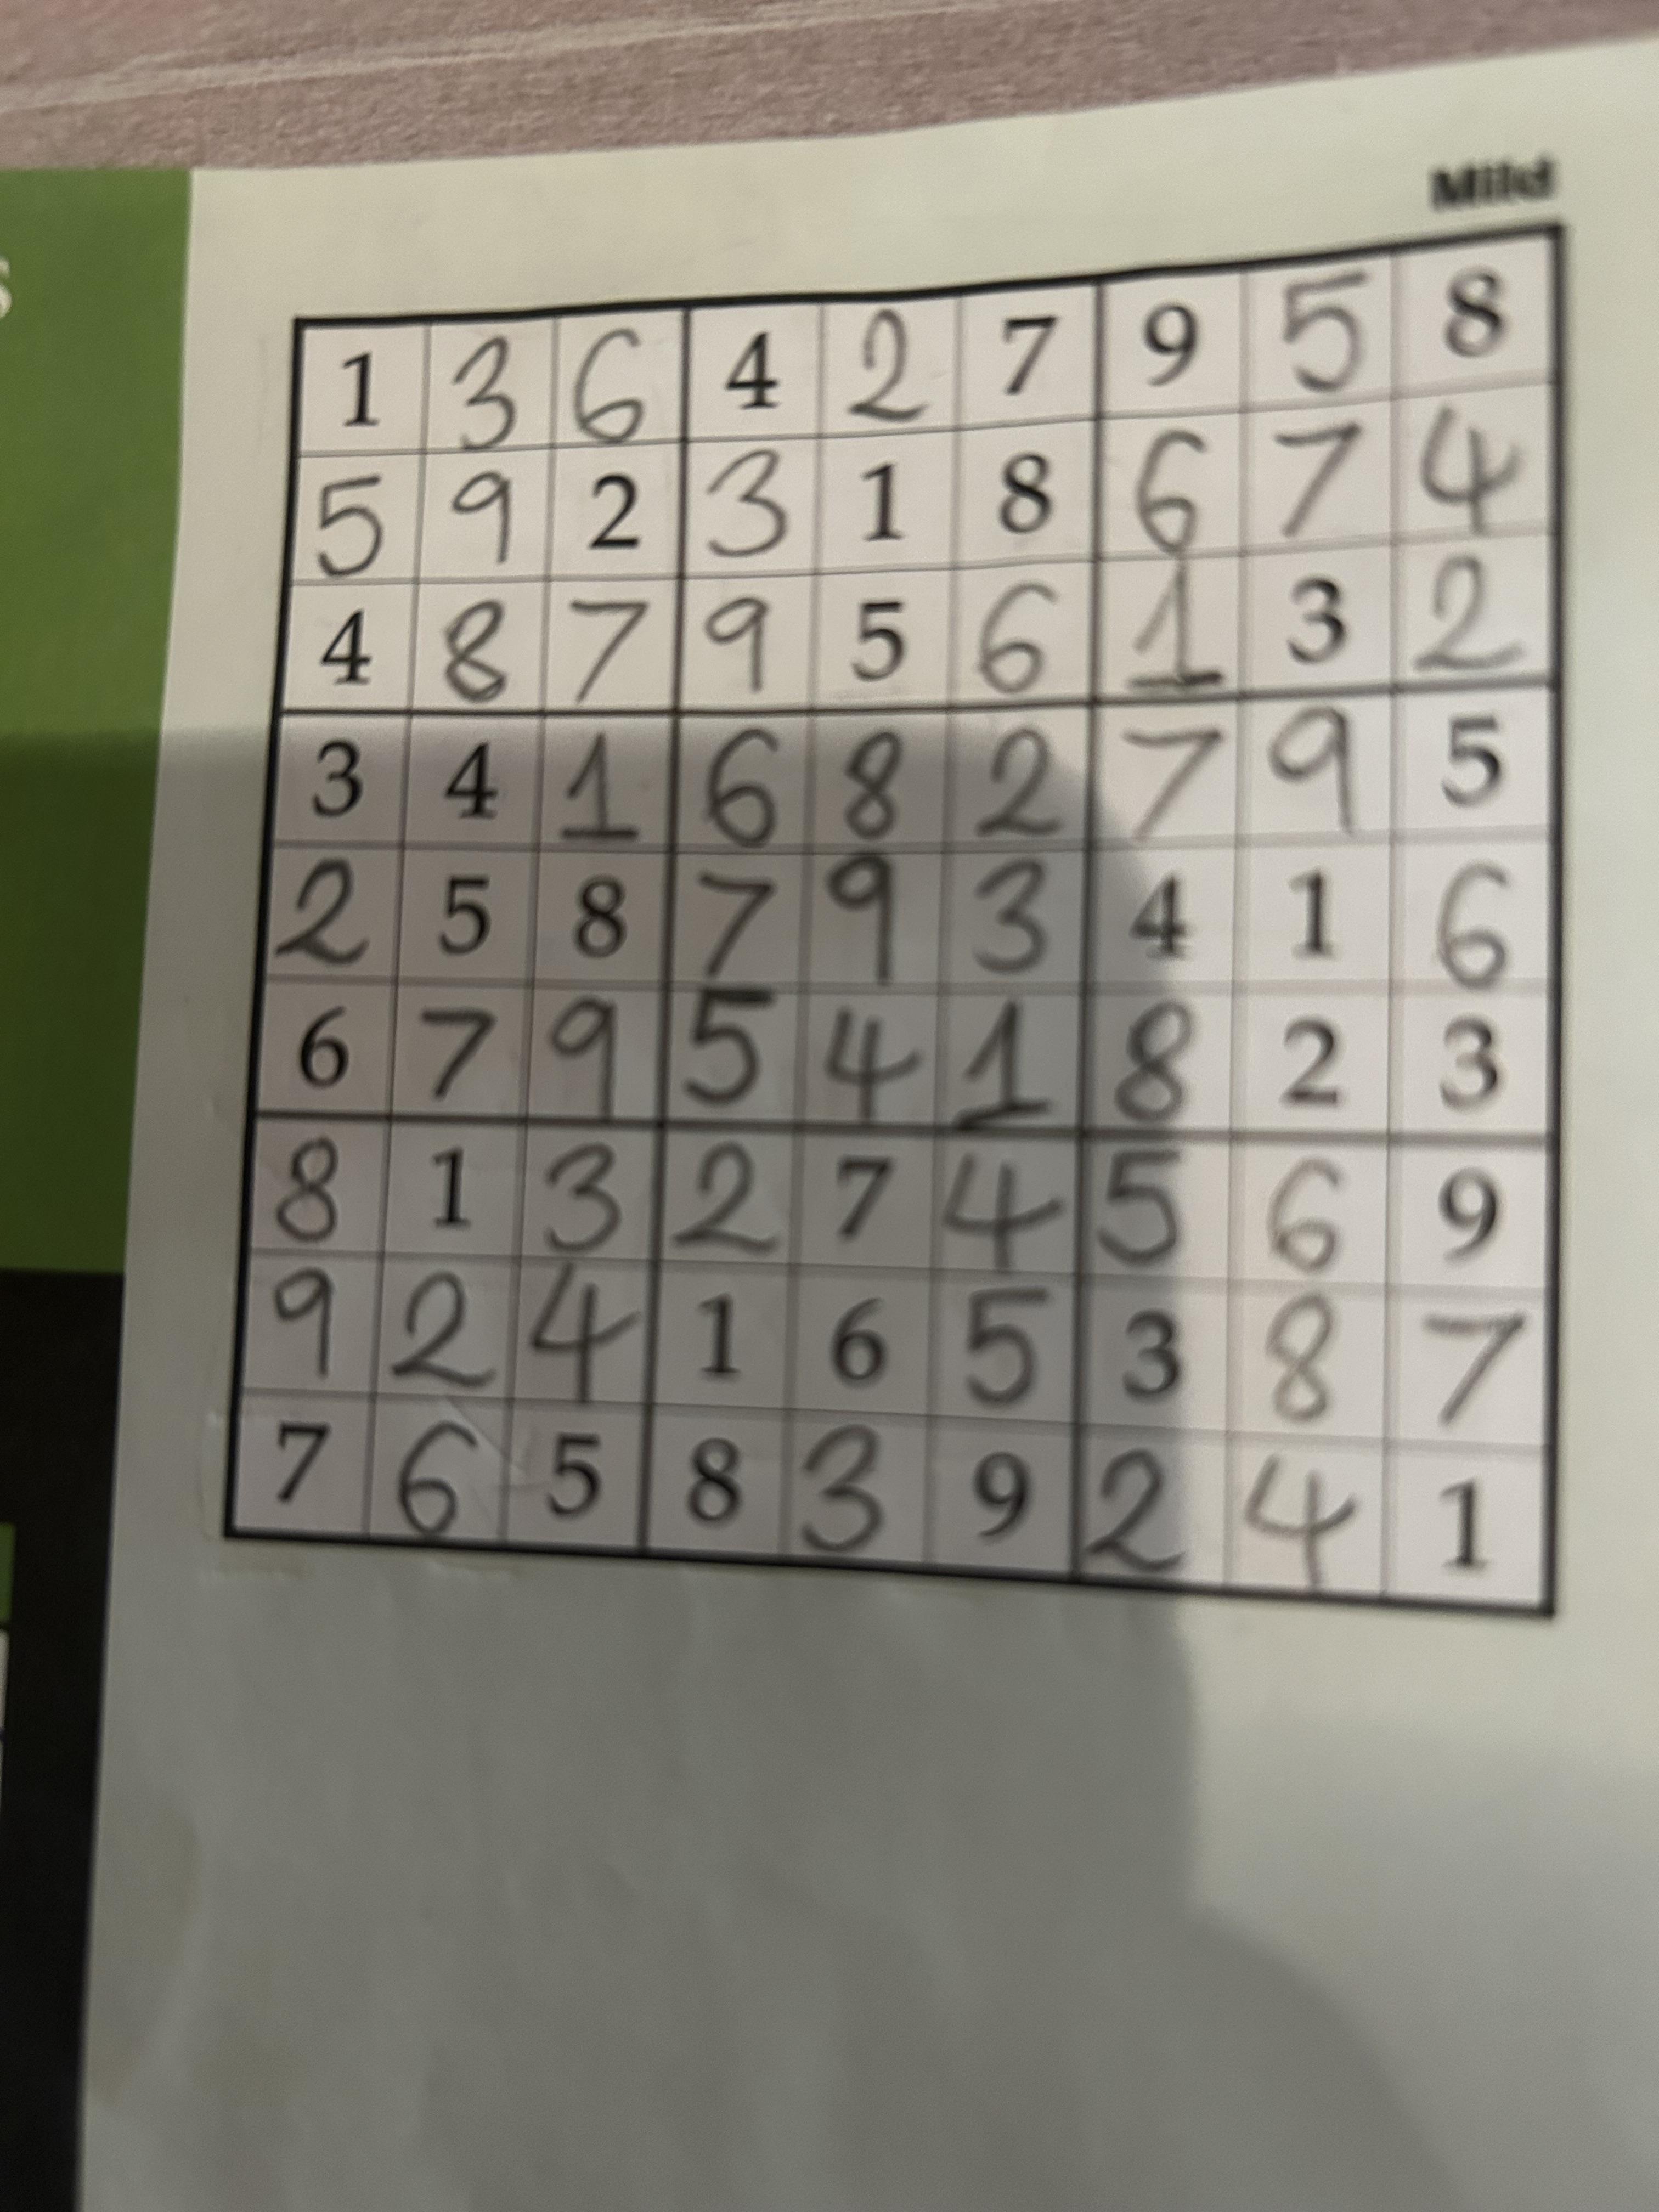 s
Mild
1 3 6 4 2 7 9 5 8
5 9 2 3 1 8 6 7 4
4 8 7 9 5 6 1 3 2
3 4 1 6 8 2 7 9 5
2 5 8 7 9 3 4 1 6
6 7 9 5 4 1 8 2 3
8 1 3 2 7 4 5 6 9
9 2 4 1 6 5 3 8 7
7 6 5 8 3 9 2 4 1